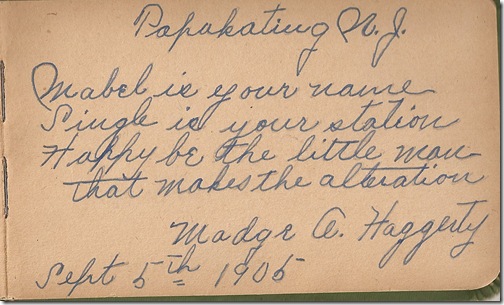 Papakating N.J.
Mabel is your name
Single is your station
Happy be the little man
that makes the alteration
Madge A. Haggerty
Sept 5th 1905